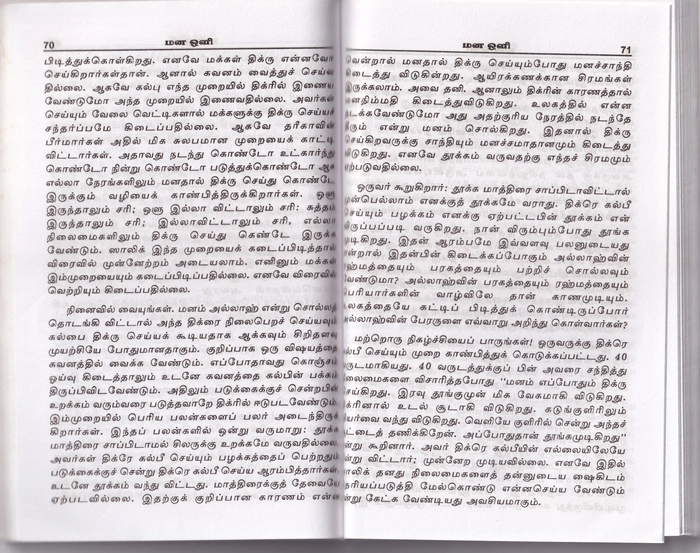 70
மன ஒளி
பிடித்துக்கொள்கிறது. எனவே மக்கள் திக்ரு என்னவோ
செய்கிறார்கள்தான். ஆனால் கவனம் வைத்துச் செய்வ
தில்லை. ஆகவே கல்பு எந்த முறையில் திக்ரில் இணைய
வேண்டுமோ அந்த முறையில் இணைவதில்லை. அவர்கள்
செய்யும் வேலை வெட்டிகளால் மக்களுக்கு திக்ரு செய்யச்
சந்தர்ப்பமே கிடைப்பதில்லை. ஆகவே தரீகாவின்
பீர்மார்கள் அதில் மிக சுலபமான முறையைக் காட்டி
விட்டார்கள். அதாவது நடந்து கொண்டோ உட்கார்ந்து
கொண்டோ நின்று கொண்டோ படுத்துக்கொண்டோ ஆக
எல்லா நேரங்களிலும் மனதால் திக்ரு செய்து கொண்டே
இருக்கும் வழியைக் காண்பித்திருக்கிறார்கள். ஒளு
இருந்தாலும் சரி; ஒளு இல்லா விட்டாலும் சரி; சுத்தம்
இருந்தாலும் சரி; இல்லாவிட்டாலும் சரி, எல்லா
நிலைமைகளிலும் திக்ரு செய்து கொண்டே இருக்க
வேண்டும். ஸாலிக் இந்த முறையைக் கடைப்பிடித்தால்
விரைவில் முன்னேற்றம் அடையலாம். எனினும் மக்கள்
இம்முறையையும் கடைப்பிடிப்பதில்லை. எனவே விரைவில்
வெற்றியும் கிடைப்பதில்லை.
நினைவில் வையுங்கள். மனம் அல்லாஹ் என்று சொல்லத்
தொடங்கி விட்டால் அந்த திக்ரை நிலைபெறச் செய்யவும்
கல்பை திக்ரு செய்யக் கூடியதாக ஆக்கவும் சிறிதளவு
முயற்சியே போதுமானதாகும். குறிப்பாக ஒரு விஷயத்தை
கவனத்தில் வைக்க வேண்டும். எப்போதாவது கொஞ்சம்
ஓய்வு கிடைத்தாலும் உடனே கவனத்தை கல்பின் பக்கம்
திருப்பிவிடவேண்டும். அதிலும் படுக்கைக்குச் சென்றபின்
உறக்கம் வரும்வரை படுத்தவாறே திக்ரில் ஈடுபடவேண்டும்.
இம்முறையில் பெரிய பலன்களைப் பலர் அடைந்திருக்
கிறார்கள். இந்தப் பலன்களில் ஒன்று வருமாறு: தூக்க
மாத்திரை சாப்பிடாமல் சிலருக்கு உறக்கமே வருவதில்லை.
அவர்கள் திக்ரே கல்பீ செய்யும் பழக்கத்தைப் பெற்றதும்
படுக்கைக்குச் சென்று திக்ரெ கல்பீ செய்ய ஆரம்பித்தார்கள்
உடனே தூக்கம் வந்து விட்டது. மாத்திரைக்குத் தேவையே
ஏற்படவில்லை. இதற்குக் குறிப்பான காரணம் என்ன
மன ஒளி
71
வென்றால் மனதால் திக்ரு செய்யும்போது மனச்சாந்தி
கிடைத்து விடுகின்றது. ஆயிரக்கணக்கான சிரமங்கள்
இருக்கலாம். அவை தனி. ஆனாலும் திக்ரின் காரணத்தால்
மனநிம்மதி கிடைத்துவிடுகிறது. உலகத்தில் என்ன
நடக்கவேண்டுமோ அது அதற்குரிய நேரத்தில் நடந்தே
தீரும் என்று மனம் சொல்கிறது. இதனால் திக்ரு
செய்கிறவருக்கு சாந்தியும் மனச்சமாதானமும் கிடைத்து
விடுகிறது. எனவே தூக்கம் வருவதற்கு எந்தச் சிரமமும்
ஏற்படுவதில்லை.
ஒருவர் கூறுகிறார்: தூக்க மாத்திரை சாப்பிடாவிட்டால்
முன்பெல்லாம் எனக்குத் தூக்கமே வராது. திக்ரெ கல்பீ
செய்யும் பழக்கம் எனக்கு ஏற்பட்டபின் தூக்கம் என்
விருப்பப்படி வருகிறது. நான் விரும்பும்போது தூங்க
முடிகிறது. இதன் ஆரம்பமே இவ்வளவு பலனுடையது
என்றால் இதன்பின் கிடைக்கப்போகும் அல்லாஹ்வின்
ரஹ்மத்தையும் பரகத்தையும் பற்றிச் சொல்லவும்
வேண்டுமா? அல்லாஹ்வின் பரகத்தையும் ரஹ்மத்தையும்
பெரியார்களின் வாழ்விலே தான் காணமுடியும்.
உலகத்தையே கட்டிப் பிடித்துக் கொண்டிருப்போர்
அல்லாஹ்வின் பேரருளை எவ்வாறு அறிந்து கொள்வார்கள்?
மற்றொரு நிகழ்ச்சியைப் பாருங்கள்! ஒருவருக்கு திக்ரெ
கல்பீ செய்யும் முறை காண்பித்துக் கொடுக்கப்பட்டது. 40
வருடமாகியது. 40 வருடத்துக்குப் பின் அவரை சந்தித்து
நிலைமைகளை விசாரித்தபோது "மனம் எப்போதும் திக்ரு
செய்கிறது. இரவு தூங்குமுன் மிக வேகமாகி விடுகிறது.
திக்ரினால் உடல் சூடாகி விடுகிறது. கடுங்குளிரிலும்
வியர்வை வந்து விடுகிறது. வெளியே குளிரில் சென்று அந்தச்
சூட்டைத் தணிக்கிறேன். அப்போதுதான் தூங்கமுடிகிறது"
என்று கூறினார். அவர் திக்ரெ கல்பீயின் எல்லையிலேயே
நின்று விட்டார்; முன்னேற முடியவில்லை. எனவே இதில்
ஸாலிக் தனது நிலைமைகளைத் தன்னுடைய ஷைகிடம்
தெரியப்படுத்தி மேல்கொண்டு என்னசெய்ய வேண்டும்
என்று கேட்க வேண்டியது அவசியமாகும்.